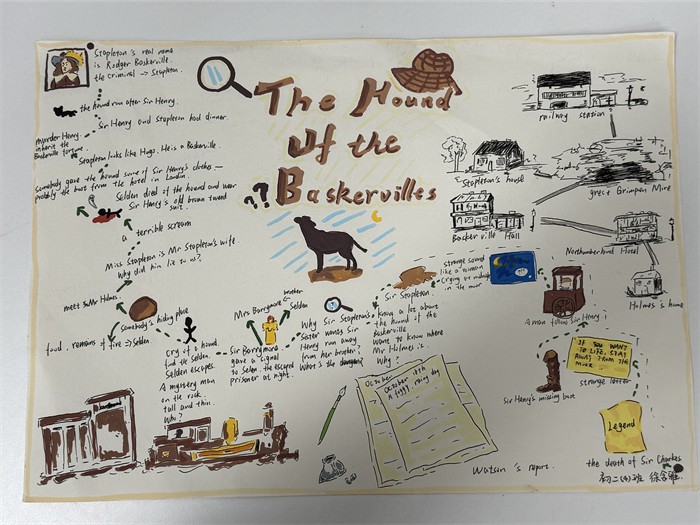 The Hound
Of the
Baskervilles
??
Stapleton's real name
is Rodger Baskerville.
the criminal → Stapleton.
the hound run after Sir Henry.
Sir Henry and Stapleton had dinner.
murder Henry.
inherit the
Baskerville fortune.
Stapleton looks like Hugo. He is a Baskerville.
Somebody gave the hound some of Sir Henry's clothes —
probably the boot from the hotel in London.
Selden died of the hound and wear
Sir Henry's old brown tweed
suit.
a terrible scream
Miss Stapleton is Mr Stapleton's wife.
Why did him lie to us?
meet Mr Holmes.
somebody's hiding place
food, remains of fire → Selden
Cry of hound.
find the Selden.
Selden escapes.
A mystery man
on the rock.
tall and thin.
Who?
Mrs Barrymore
brother
Selden
Sir Barrymore
gave a signal
to Selen, the escaped
prisoner at night.
Why Sir Stapleton's
Sister wants Sir
Henry run away
from her brother?
What's the danger?
Sir Stapleton.
know a lot about
the hound of the
Baskerville
want to know where
Mr Holmes is
Why?
strange sound
like a woman
crying at midnight
in the moor
railway station
Stapleton's house
great Grimpen Mire
Baskerville Hall
Northumberland Hotel
Holmes's home
A man follows Sir Henry!
IF YOU WANT
TO LIFE, STAY
AWAY FROM THE
MOOR
strange letter
Sir Henry's missing boot
Legend
the death of Sir Charles
October
October 16th
A foggy, rainy day
Watson's report.
初二(4)班